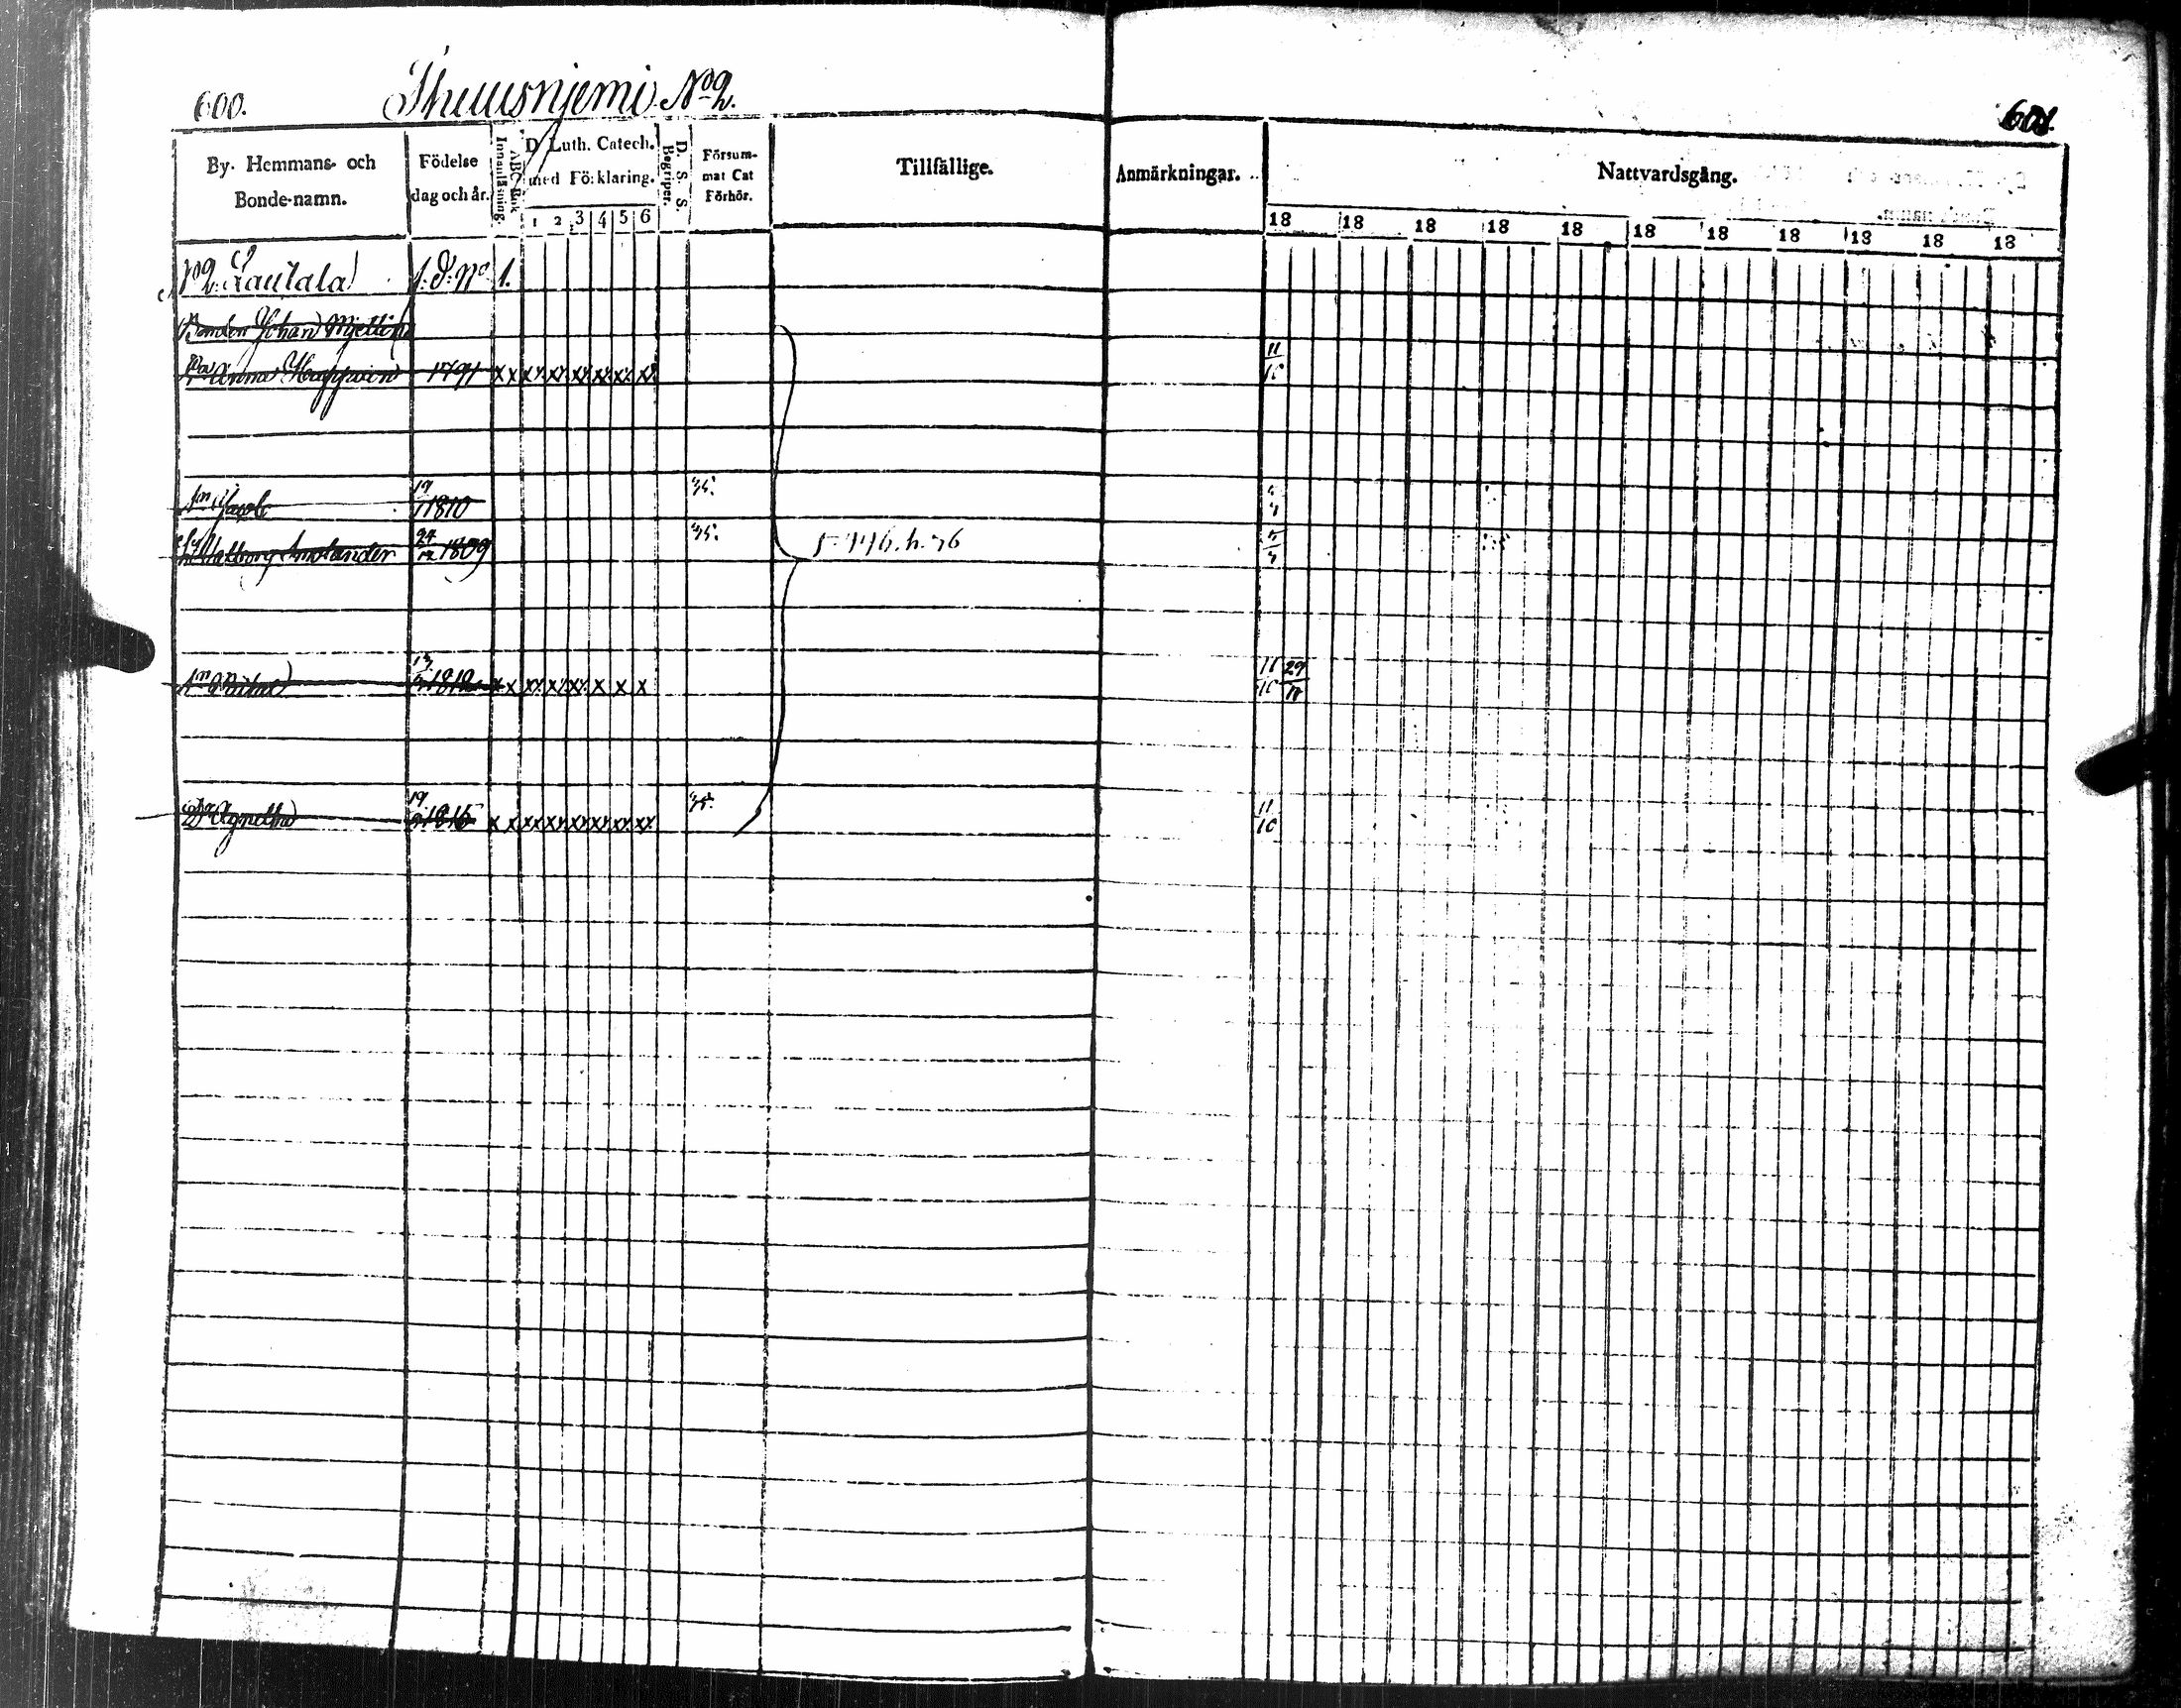 600. Thuusnjemi No 2. 601.
By. Hemmans- och Bonde-namn.
Födelse dag och år.
Innanläsning.
ABC-Bok
D Luth. Catech. med Förklaring.
1 2 3 4 5 6
D. S. S. Begriper.
Försum- mat Cat Förhör.
Tillfällige.
Anmärkningar.
Nattvardsgång.
18 18 18 18 18 18 18 18 18 18 18
No 2. Lautala 1. No 1.
Bonden Johan Mjettinen
Anna Happoin 1791 x x xx xx xx xx xx xx 11/10
Sn Jacob 19 1810 35.
Walborg Smolander 24/12 1809 35.
13 1812 x x xx xx xx x x x 11/10 29/11
Dr Agnetha 19 1815 x x xx xx xx xx xx xx 35. 11/10